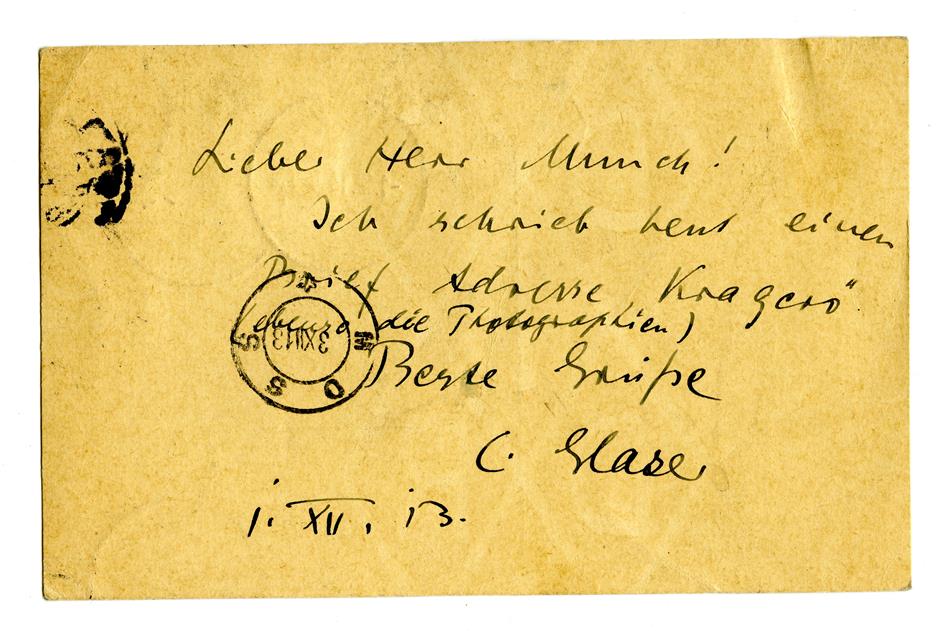 Lieber Herr Munch!
Ich schrieb heut einen
Brief Adresse „Kragerö"
(ebenso die Photographien)
Beste Grüße
C. Glaser
1. XII. 13.
MOSS
3 XII 13